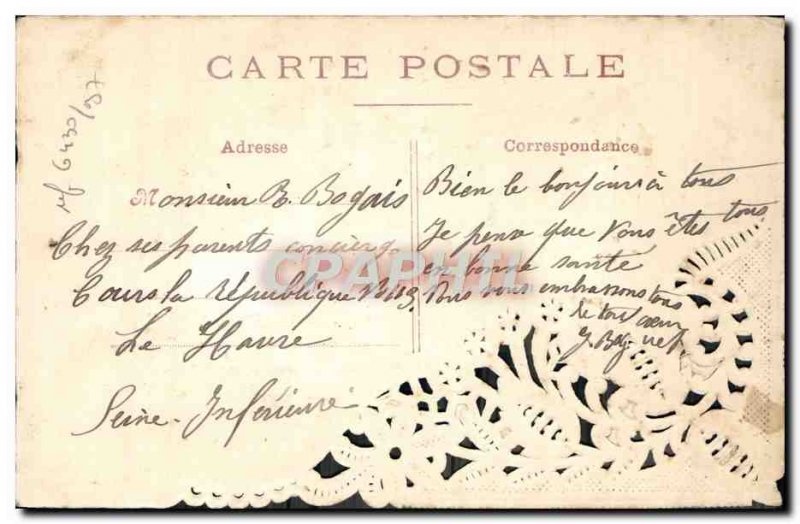 CARTE POSTALE
ref 6430/097
Adresse
Monsieur R. Bogais
Chez ses parents concierg
Cours la République
Le Havre
Seine-Inférieure
Correspondance
Bien le bonjour à tous
Je pense que Vous êtes tous
en bonne santé
vous embrassons tous
de tout coeur
CPAPHIL